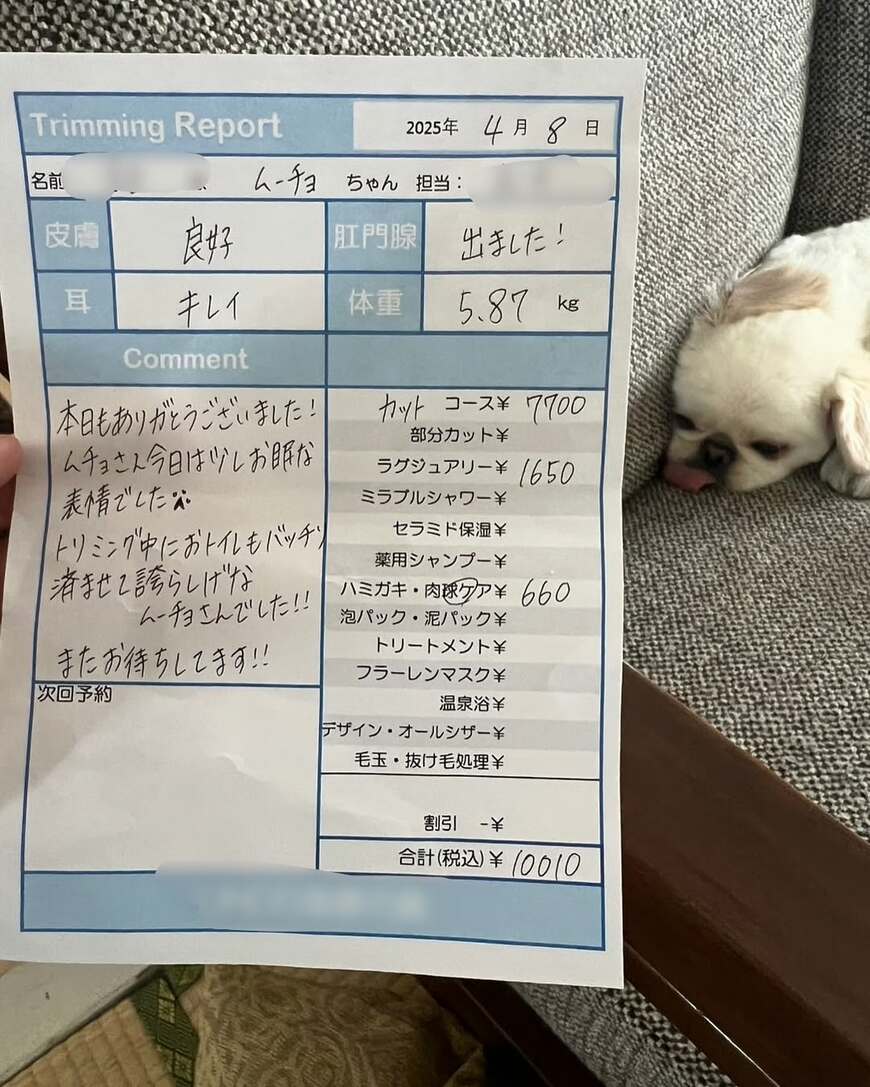 Trimming Report
2025年 4月 8日
名前 ムーチョ ちゃん 担当:
皮膚 良好 肛門腺 出ました!
耳 キレイ 体重 5.87 kg
Comment
本日もありがとうございました!
ムチョさん今日は少しお眠な
表情でした
トリミング中におトイレもバッチリ
済ませて誇らしげな
ムーチョさんでした!!
またお待ちしてます!!
次回予約
カット コース¥ 7700
部分カット¥
ラグジュアリー¥ 1650
ミラブルシャワー¥
セラミド保湿¥
薬用シャンプー¥
ハミガキ・肉球ケア¥ 660
泡パック・泥パック¥
トリートメント¥
フラーレンマスク¥
温泉浴¥
デザイン・オールシザー¥
毛玉・抜け毛処理¥
割引 -¥
合計(税込)¥ 10010